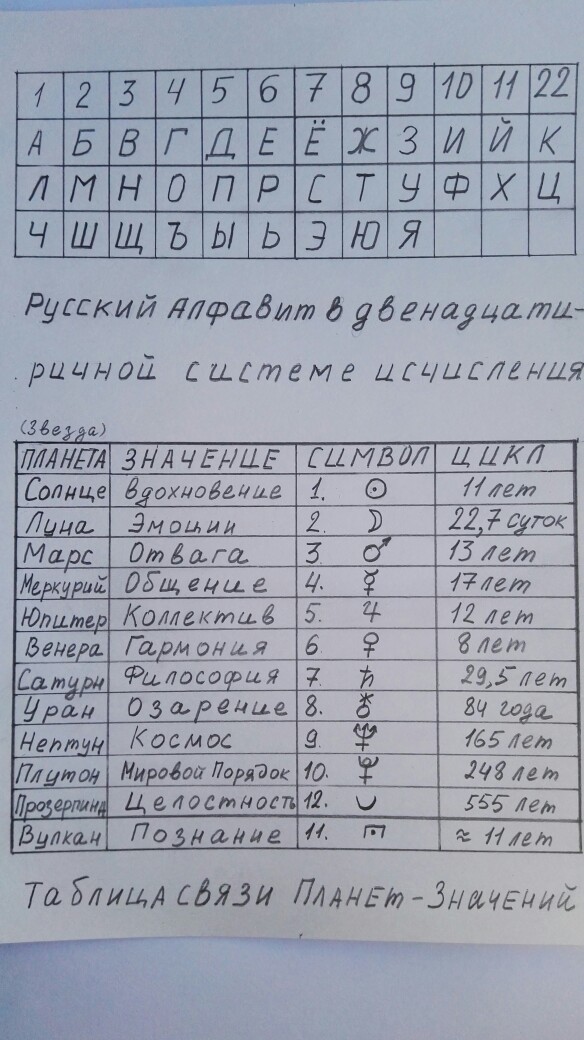 1 2 3 4 5 6 7 8 9 10 11 22
А Б В Г Д Е Ё Ж З И Й К
Л М Н О П Р С Т У Ф Х Ц
Ч Ш Щ Ъ Ы Ь Э Ю Я
Русский Алфавит в двенадцати-
ричной системе исчисления
(Звезда)
ПЛАНЕТА ЗНАЧЕНИЕ СИМВОЛ ЦИКЛ
Солнце Вдохновение 1. ☉ 11 лет
Луна Эмоции 2. ☽ 22,7 суток
Марс Отвага 3 ♂ 13 лет
Меркурий Общение 4. ☿ 17 лет
Юпитер Коллектив 5. ♃ 12 лет
Венера Гармония 6 ♀ 8 лет
Сатурн Философия 7. ♄ 29,5 лет
Уран Озарение 8. ⚷ 84 года
Нептун Космос 9 ♆ 165 лет
Плутон Мировой Порядок 10. 248 лет
Прозерпина Целостность 12. 555 лет
Вулкан Познание 11. ≈ 11 лет
Таблица связи Планет-Значений